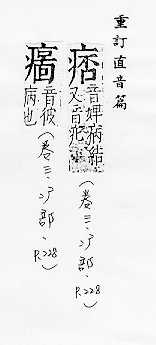 重訂直音篇
痞音婢病結又音（卷三、疒部、P.228）
音彼病也（卷三、疒部、P.228）